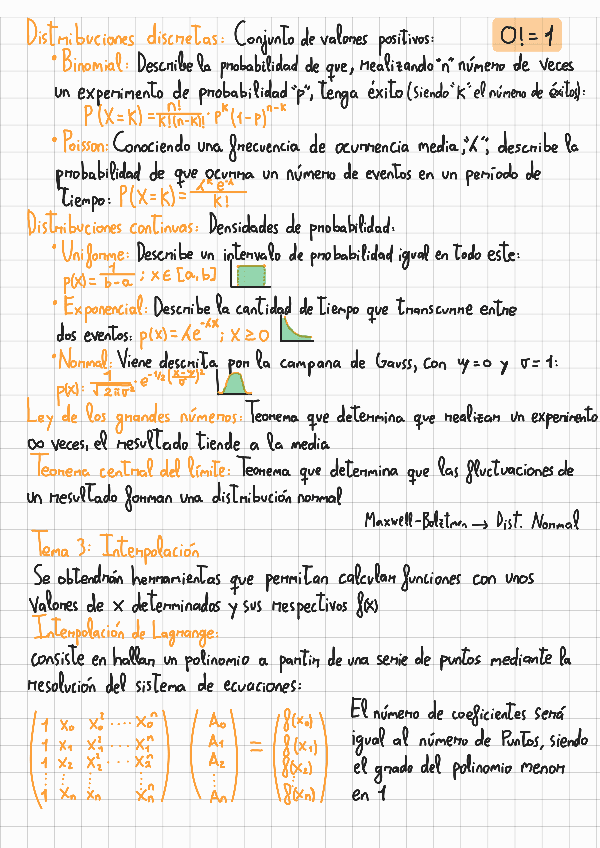 Distribuciones discretas: Conjunto de valores positivos: 0! = 1
• Binomial: Describe la probabilidad de que, realizando "n" número de veces
un experimento de probabilidad "p", tenga éxito (siendo "k" el número de éxitos):
P(X=K) = n!/K!(n-K)! · p^k (1-p)^n-k
• Poisson: Conociendo una frecuencia de ocurrencia media, "λ", describe la
probabilidad de que ocurra un número de eventos en un período de
tiempo: P(X=K) = λ^k e^-λ / K!
Distribuciones continuas: Densidades de probabilidad:
• Uniforme: Describe un intervalo de probabilidad igual en todo este:
p(x) = 1/b-a ; x ∈ [a,b]
• Exponencial: Describe la cantidad de tiempo que transcurre entre
dos eventos: p(x) = λe^-λx ; x ≥ 0
• Normal: Viene descrita por la campana de Gauss, con μ=0 y σ=1:
p(x): 1/√2πσ² · e^-1/2
Ley de los grandes números: Teorema que determina que realizar un experimento
∞ veces, el resultado tiende a la media
Teorema central del límite: Teorema que determina que las fluctuaciones de
un resultado forman una distribución normal
Maxwell-Boltzman → Dist. Normal
Tema 3: Interpolación
Se obtendrán herramientas que permitan calcular funciones con unos
Valores de x determinados y sus respectivos f(x)
Interpolación de Lagrange:
consiste en hallar un polinomio a partir de una serie de puntos mediante la
resolución del sistema de ecuaciones:
1 x₀ x₀² ···· x₀ⁿ A₀ f(x₀)
1 x₁ x₁² ···· x₁ⁿ A₁ = f(x₁)
1 x₂ x₂² ···· x₂ⁿ A₂ f(x₂)
⋮ ⋮ ⋮ ⋮ ⋮ ⋮
1 xₙ xₙ xₙⁿ Aₙ f(xₙ)
El número de coeficientes será
igual al número de Puntos, siendo
el grado del polinomio menor
en 1